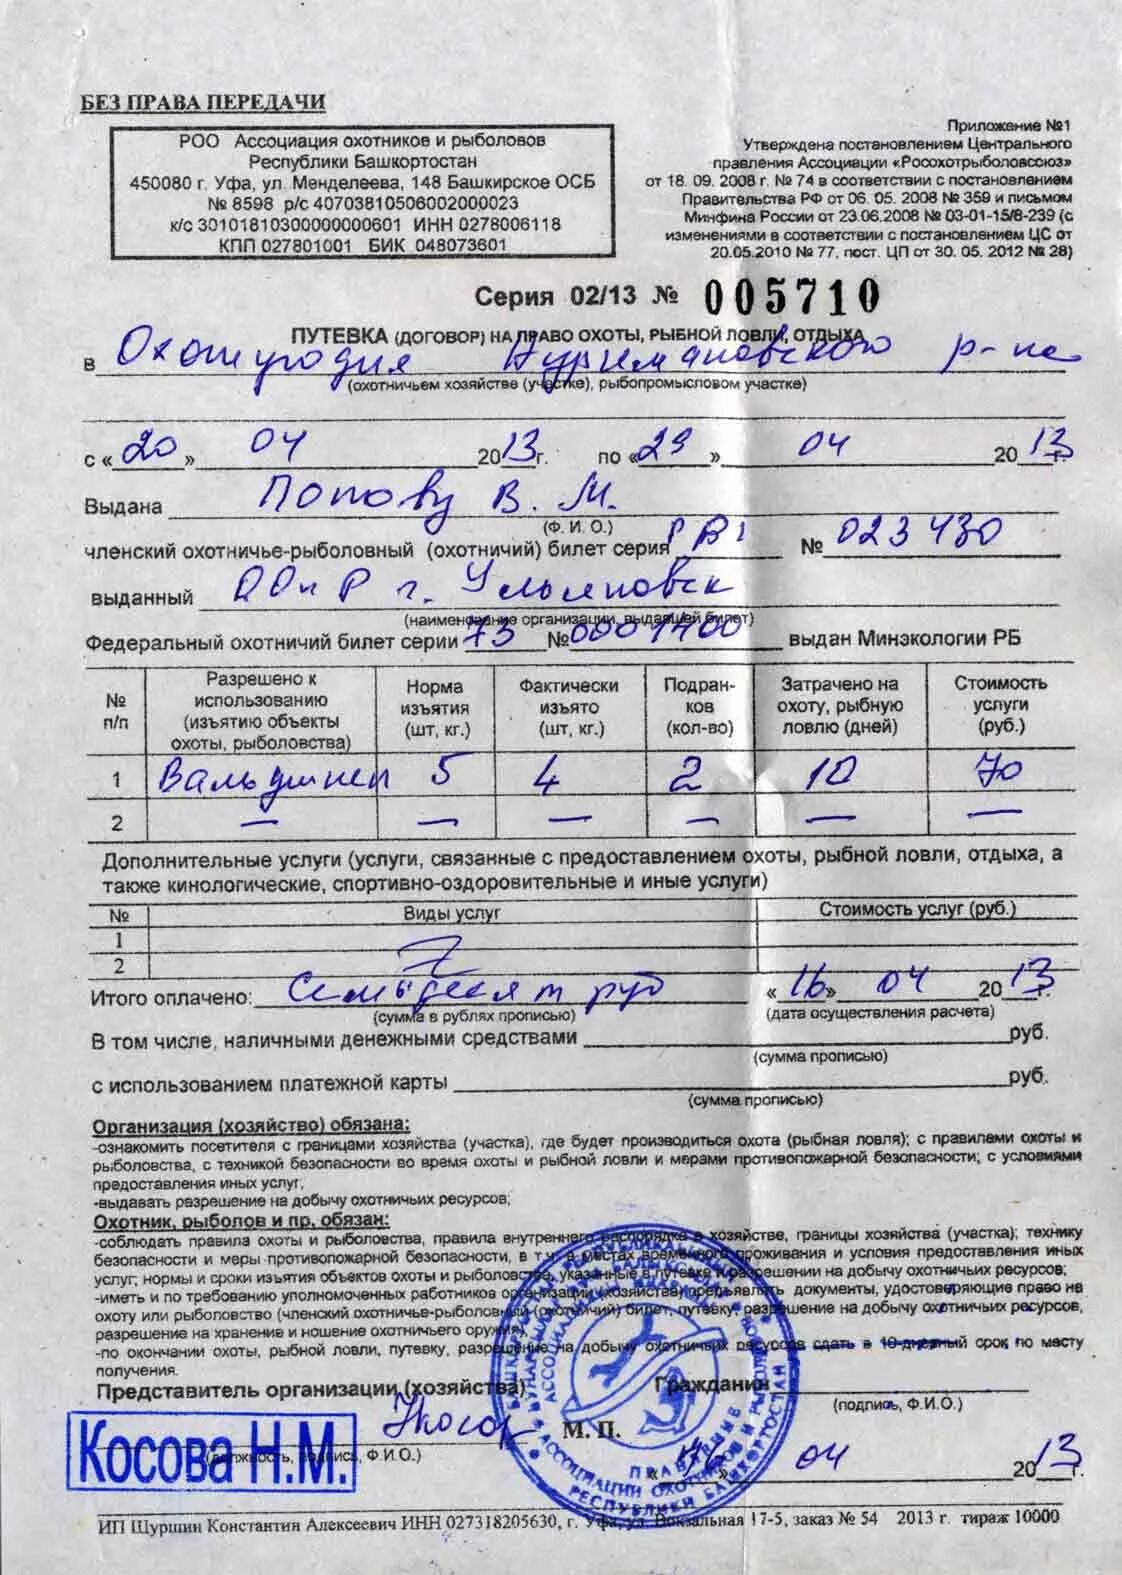 БЕЗ ПРАВА ПЕРЕДАЧИ
РОО Ассоциация охотников и рыболовов
Республики Башкортостан
450080 г. Уфа, ул. Менделеева, 148 Башкирское ОСБ
№ 8598 р/с 40703810506002000023
к/с 30101810300000000601 ИНН 0278006118
КПП 027801001 БИК 048073601
Приложение №1
Утверждена постановлением Центрального
правления Ассоциации «Росохотрыболовсоюз»
от 18. 09. 2008 г. № 74 в соответствии с постановлением
Правительства РФ от 06. 05. 2008 № 359 и письмом
Минфина России от 23.06.2008 № 03-01-15/8-239 (с
изменениями в соответствии с постановлением ЦС от
20.05.2010 № 77, пост. ЦП от 30. 05. 2012 № 28)
Серия 02/13 № 005710
ПУТЕВКА (ДОГОВОР) НА ПРАВО ОХОТЫ, РЫБНОЙ ЛОВЛИ, ОТДЫХА
в Охотугодия Нуримановского р-на
(охотничьем хозяйстве (участке), рыбопромысловом участке)
с «20» 04 2013 г. по «29» 04 2013 г.
Выдана Попову В. М.
(Ф. И. О.)
членский охотничье-рыболовный (охотничий) билет серия РВ1 № 023430
выданный ООиР г. Ульяновск
(наименование организации, выдавшей билет)
Федеральный охотничий билет серии 73 № 0001400 выдан Минэкологии РБ
№ п/п Разрешено к использованию (изъятию объекты охоты, рыболовства) Норма изъятия (шт, кг.) Фактически изъято (шт, кг.) Подранков (кол-во) Затрачено на охоту, рыбную ловлю (дней) Стоимость услуги (руб.)
1 Вальдшнеп 5 4 2 10 70
2 — — — — — —
Дополнительные услуги (услуги, связанные с предоставлением охоты, рыбной ловли, отдыха, а
также кинологические, спортивно-оздоровительные и иные услуги)
№ Виды услуг Стоимость услуг (руб.)
1
2
Итого оплачено: Семьдесят руб «16» 04 2013 г.
(сумма в рублях прописью) (дата осуществления расчета)
В том числе, наличными денежными средствами руб.
(сумма прописью)
с использованием платежной карты руб.
(сумма прописью)
Организация (хозяйство) обязана:
-ознакомить посетителя с границами хозяйства (участка), где будет производиться охота (рыбная ловля); с правилами охоты и
рыболовства, с техникой безопасности во время охоты и рыбной ловли и мерами противопожарной безопасности; с условиями
предоставления иных услуг;
-выдавать разрешение на добычу охотничьих ресурсов;
Охотник, рыболов и пр. обязан:
-соблюдать правила охоты и рыболовства, правила внутреннего распорядка в хозяйстве, границы хозяйства (участка); технику
безопасности и меры противопожарной безопасности, в т.ч. в местах временного проживания и условия предоставления иных
услуг; нормы и сроки изъятия объектов охоты и рыболовства, указанные в путевке и разрешении на добычу охотничьих ресурсов;
-иметь и по требованию уполномоченных работников организации (хозяйства) предъявлять документы, удостоверяющие право на
охоту или рыболовство (членский охотничье-рыболовный (охотничий) билет, путевку, разрешение на добычу охотничьих ресурсов,
разрешение на хранение и ношение охотничьего оружия),
-по окончании охоты, рыбной ловли, путевку, разрешение на добычу охотничьих ресурсов сдать в 10-дневный срок по месту
получения.
Представитель организации (хозяйства) Гражданин
(подпись, Ф.И.О.)
М. П.
Косова Н.М.
(должность, подпись, Ф.И.О.)
«16» 04 2013 г.
ПРАВЛЕНИЕ
АССОЦИАЦИИ ОХОТНИКОВ И РЫБОЛОВОВ
РЕСПУБЛИКИ БАШКОРТОСТАН
ИП Шуршин Константин Алексеевич ИНН 027318205630, г. Уфа, ул. Вокзальная 17-5, заказ № 54 2013 г. тираж 10000